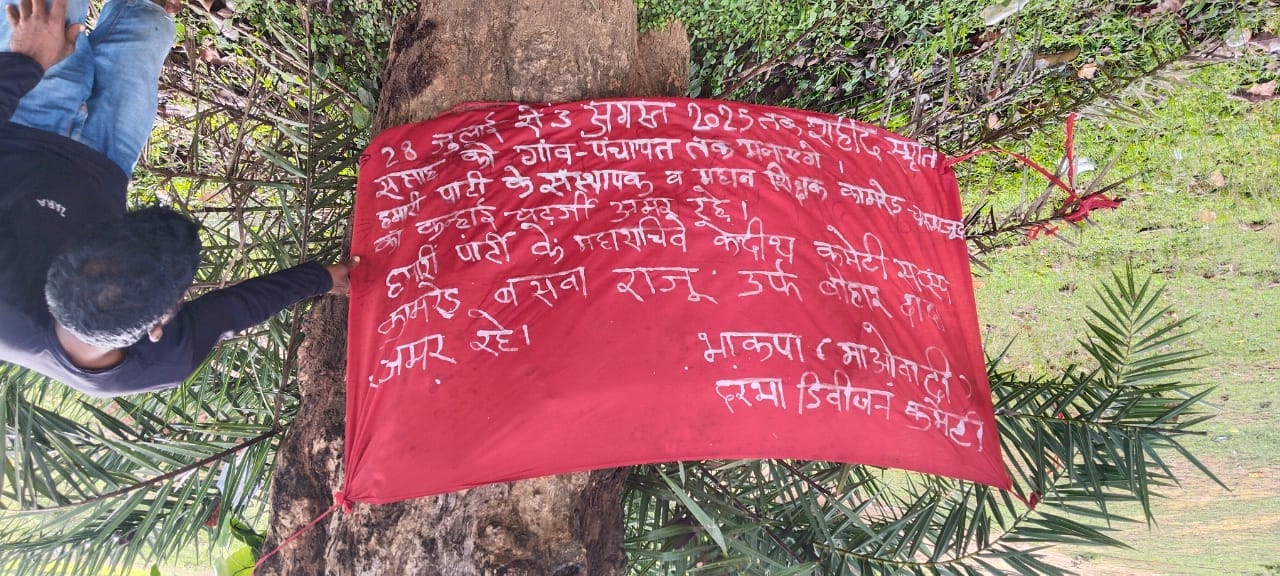 28 जुलाई से 3 अगस्त 2025 तक शहीद स्मृति
सप्ताह को गांव-पंचायत तक मनाएंगे।
हमारी पार्टी के संस्थापक व महान शिक्षक कामरेड चारूमजूमदार
का कन्हाई चटर्जी अमर रहे।
हमारी पार्टी के महासचिव केंद्रीय कमेटी सदस्य
कामरेड बसवा राजू उर्फ बीआर दादा
अमर रहे।
भाकपा (माओवादी)
दरभा डिवीजन कमेटी
ZARA